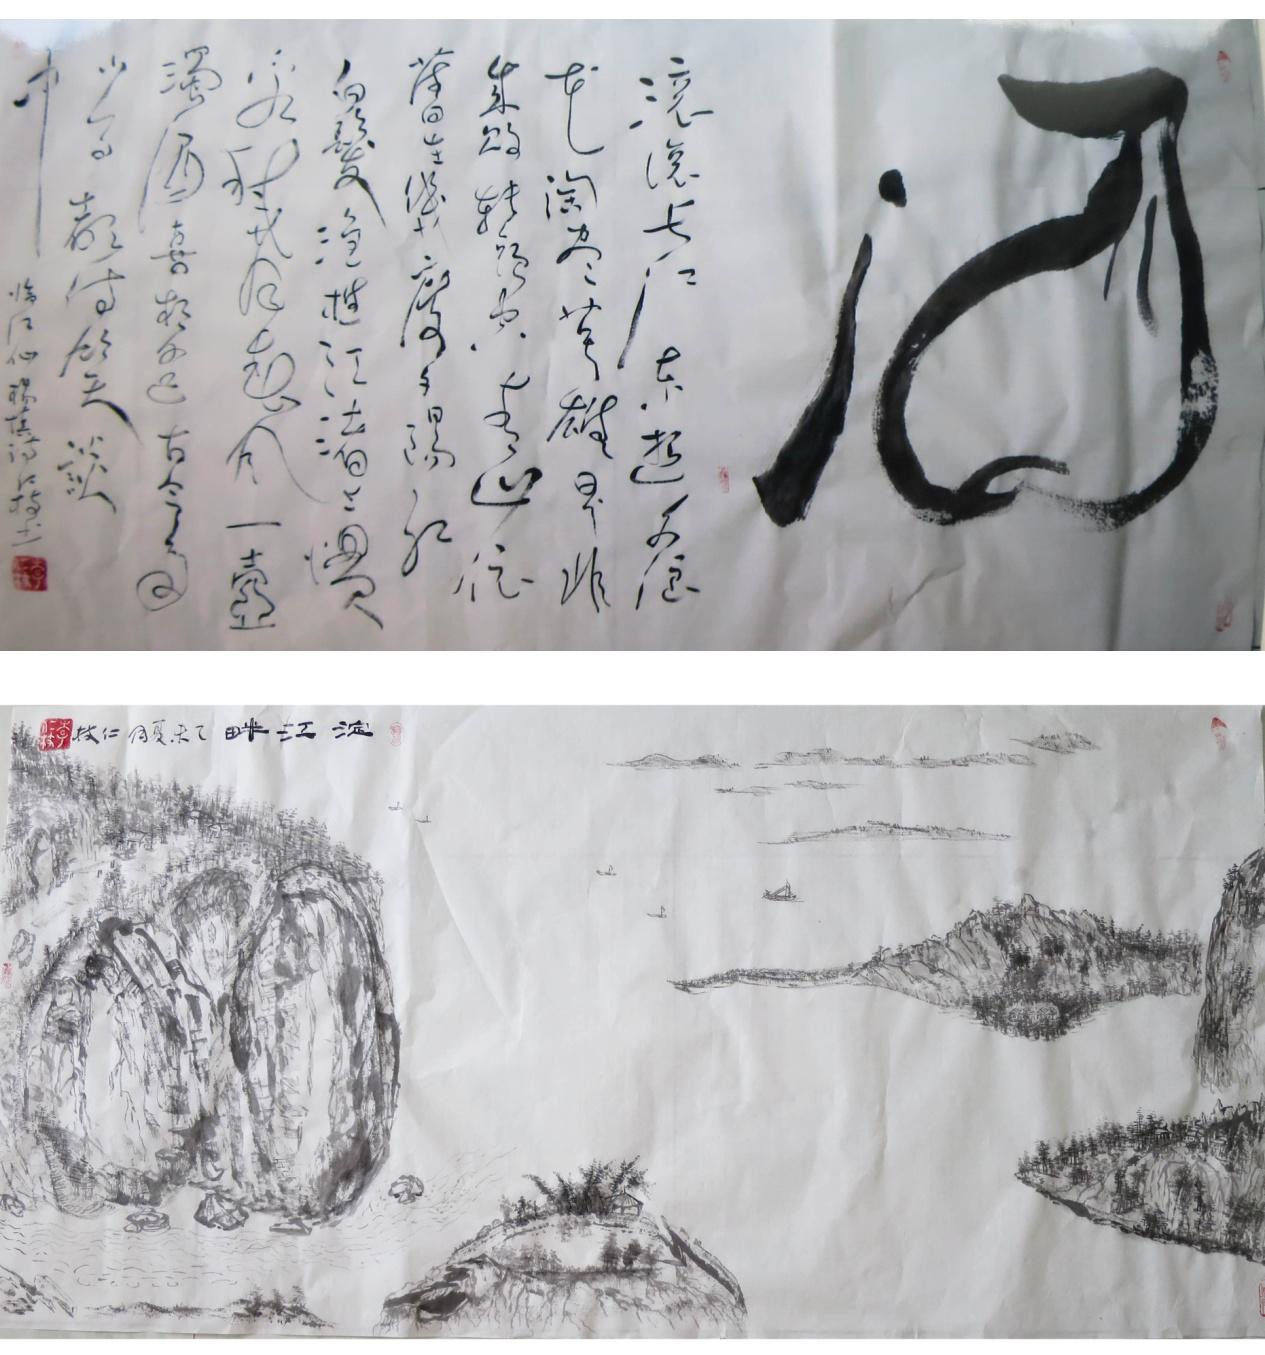 滚滚长江东逝水浪
花淘尽英雄是非
成败转头空青山依
舊在幾度夕陽红
白髮渔樵江渚上惯
看秋月春风一壺
濁酒喜相逢古今多
少事都付笑谈
中
临江仙 杨慎词 仁枝
淀江畔 乙未夏月仁枝